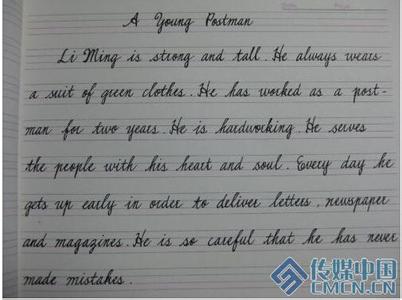 A Young Postman
Li Ming is strong and tall. He always wears
a suit of green clothes. He has worked as a post-
man for two years. He is hardworking. He serves
the people with his heart and soul. Every day he
gets up early in order to deliver letters, newspaper
and magazines. He is so careful that he has never
made mistakes.
传媒中国
CMCN.CN